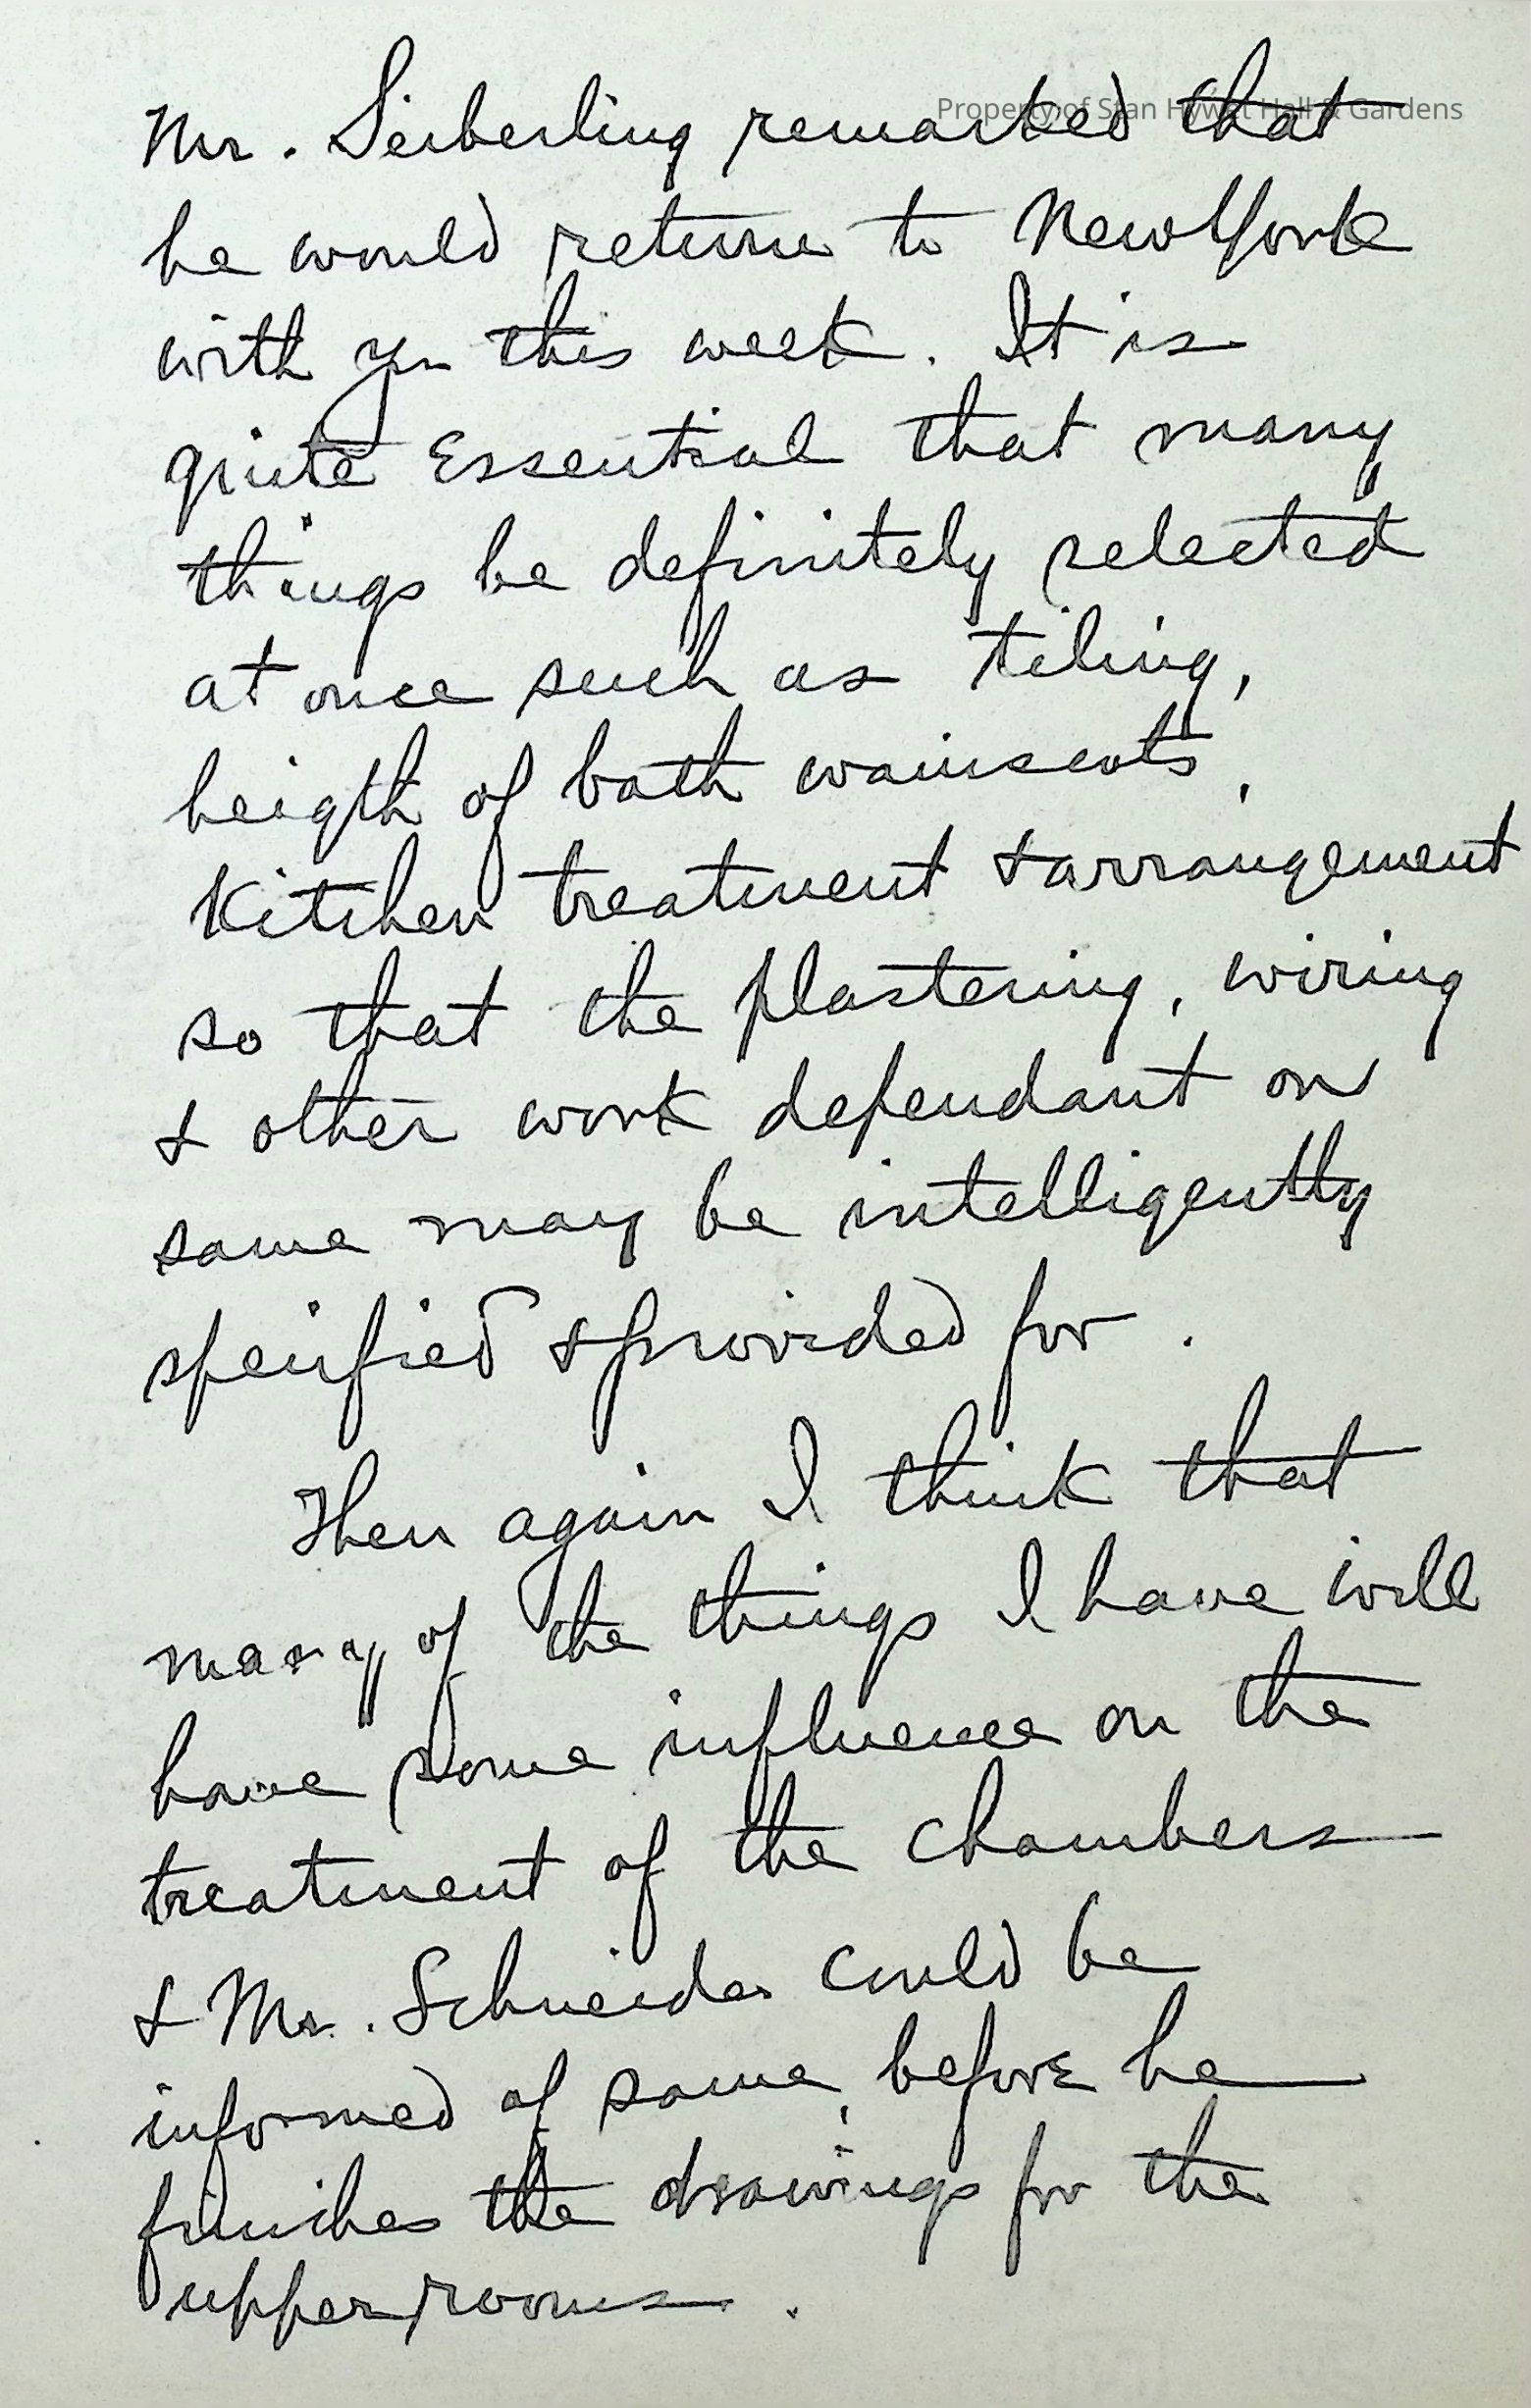 Property of Stan Hywet Hall & Gardens
Mr. Seiberling remarked that
he would return to New York
with you this week. It is
quite Essential that many
things be definitely selected
at once such as tiling,
heigth of bath wainscots,
Kitchen treatment & arrangement
so that the plastering, wiring
& other work dependant on
same may be intelligently
specified & provided for.
Then again I think that
many of the things I have will
have some influence on the
treatment of the chambers
& Mr. Schneider could be
informed of same, before he
finishes the drawings for the
upper rooms.